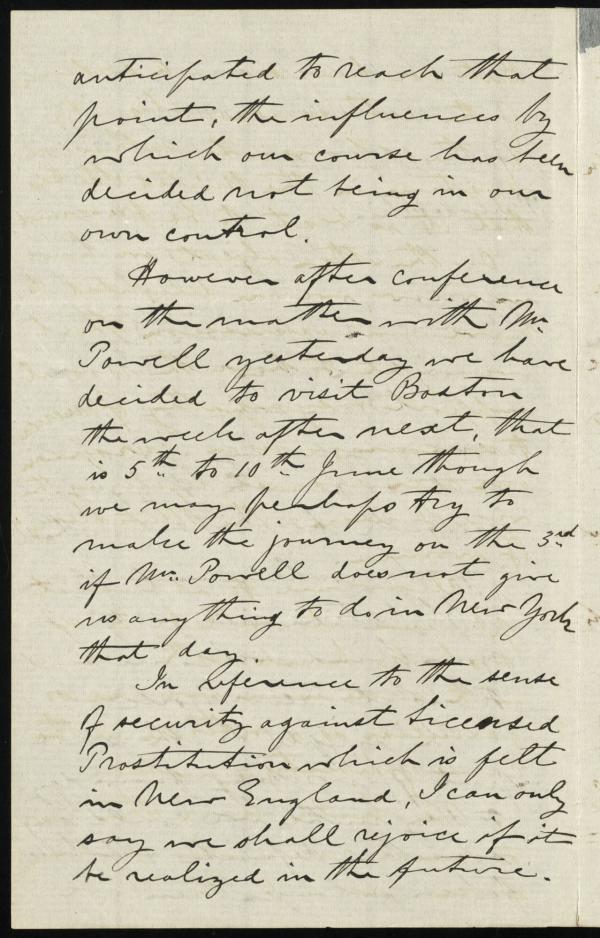 anticipated to reach that
point, the influences by
which our course has been
decided not being in our
own control.
However after conference
on the matter with Mr.
Powell yesterday we have
decided to visit Boston
the week after next, that
is 5th to 10th June though
we may perhaps try to
make the journey on the 3rd
if Mr. Powell does not give
us anything to do in New York
that day.
In reference to the sense
of security against Licensed
Prostitution which is felt
in New England, I can only
say we shall rejoice if it
be realized in the future.